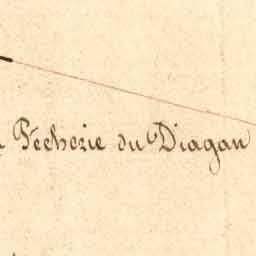 Pecherie du Diagan